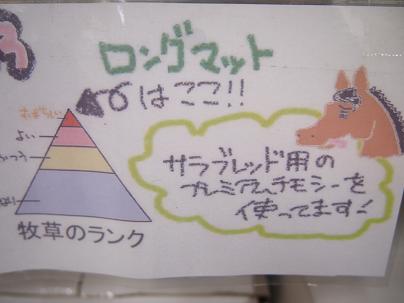 ロングマット
はここ!!
すばらしい
よい
ふつう
牧草のランク
サラブレッド用の
プレミアムチモシーを
使ってます!